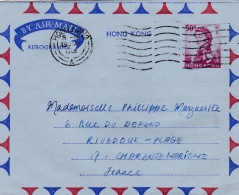 BY AIR MAIL
AEROGRAMME
HONG KONG
50¢
HONG KONG
Mademoiselle Philippe Marguerite
6, Rue du DEFEND
RIVEDOUX-PLAGE
17 - CHARENTE MARITIME
France